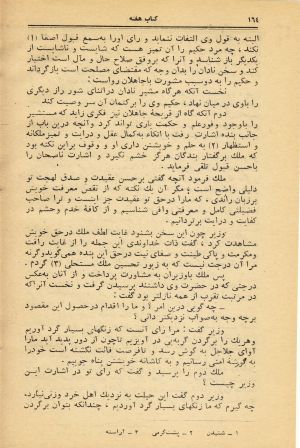 ۱۶٤ کتاب هفته
البته به قول وی التفات ننماید و رای اورا به سمع قبول اصغا (۱)
نکند، چه مرد حکیم را آن تمیز هست که شایست و ناشایست از
یکدیگر باز شناسد و آنرا که بر وفق صلاح حال و مآل است اختیار
کند و سخن نادان را بدان وجه که مقتضای مصلحت است باز گرداند
و حکیم را به دوسبب مشورت با جاهلان رواست:
نخست آنکه هرگاه مشیر نادان در اثنای شور راز دیگری
را باوی در میان نهاد، حکیم وی را بر کتمان آن سر وصیت کند
دوم آنکه گاه از قریحهٔ جاهلان نیز فکری زاید که مستشیر
را با وجود وفور علم و حکمت یاری تواند کرد و آنچه درین باب از
جانب بنده اشارت رفت با اتکاء به کمال عقل و درایت و تمیز ملکانه
و استظهار (۲) به حلم و خویشتن داری او و وقوف بر این نکته بود
که ملك بر گفتار بندگان هرگز خشم نگیرد و اشارت ناصحان را
باحسن قبول تلقی فرماید.
ملك فرمود آنچه گفتی بر حسن عقیدت و صدق لهجت تو
دلیلی واضح است؛ مگر آن یك نکته که از نقص معرفت خویش
بر زبان راندی، که مارا در حق تو عقیدت جز اینست و ترا صاحب
فضیلتی کامل و معرفتی وافی شناسیم و از کافهٔ خدم وحشم در
کفایت و درایت برتر دانیم.
وزیر چون این سخن بشنود غایت لطف ملك در حق خویش
مشاهدت کرد، گفت ذات خداوندی این جمله را از غایت رافت
ومکرمت و پاکی طینت و صفای نیت در حق این بنده همی گوید و گرنه
مرا آن درجت نیست که به زیور تحسین ملك مستحلی (۳) گردم.
پس ملك با وزیران به مشاورت پرداخت و از آنان به عکس
درجتی که در حضرت وی داشتند پرسیدن گرفت و نخست آنرا که
در مرتبت تقرب از همه نازلتر بود گفت:
چه گویی درین امر؟ و ما را اقدام در حصول این مقصود
برچه وجه به صواب نزدیکتر دانی؟
وزیر گفت: مرا رای آنست که زنگهای بسیار گرد آوریم
وهریك را بر گردن گربه‌یی در آویزیم تا چون از دور پدید آید مارا
آوای جلاجل به گوش رسد و تا فرصت فالت نگشته است خود را از
به گوشهٔ امنی رسانیم و به کاشانهٔ خویش پناه جوییم.
ملك دوم را پرسید و گفت که رای تو در اشارت این
وزیر چیست؟
وزیر دوم گفت این حیلت به نزدیك اهل خرد وزنی نیارد،
چه گیرم که ما زنگهای بسیار گرد آوردیم، چندانکه بتوان بر گردن
۱ - شنیدن ۲ - پشت‌گرمی ۳ - آراسته